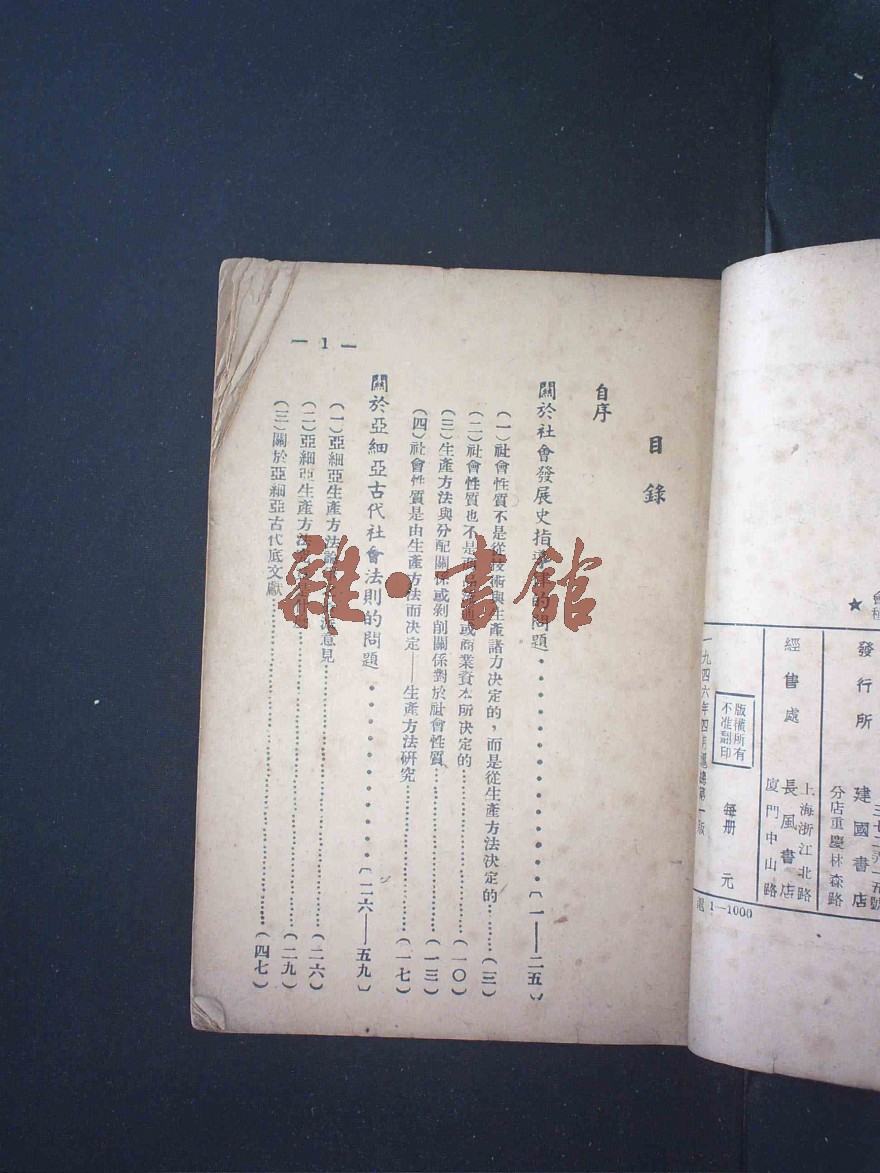 會
★
發行所
建國書店
分店重慶林森路
經售處
上海浙江北路
長風書店
廈門中山路
版權所有
不准翻印
每册 元
一九四六年四月滬 第一版
1—1000
目錄
自序
關於社會發展史指導 的問題……〔一——二五〕
(一)社會性質不是從技術與生產諸力決定的，而是從生產方法決定的……(三)
(二)社會性質也不是 或商業資本所決定的……(一〇)
(三)生產方法與分配關係或剝削關係對於社會性質……(一三)
(四)社會性質是由生產方法而決定——生產方法研究……(一七)
關於亞細亞古代社會法則的問題……〔二六——五九〕
(一)亞細亞生產方法論 意見……(二六)
(二)亞細亞生產方法 ……(二九)
(三)關於亞細亞古代底文獻……(四七)
— 1 —
雜·書館